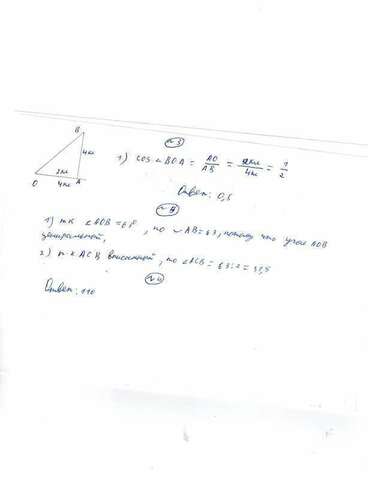 B
4кл
2кл
O 4кл A
№5
1) cos ∠BOA = AO/AB = 2кл/4кл = 1/2
Ответ: 0,5
1) т.к ∠AOB = 63°, то ◡AB = 63, потому что угол AOB
центральный,
2) т.к ACB вписанный, то ∠ACB = 63:2 = 31,5
Ответ: 110